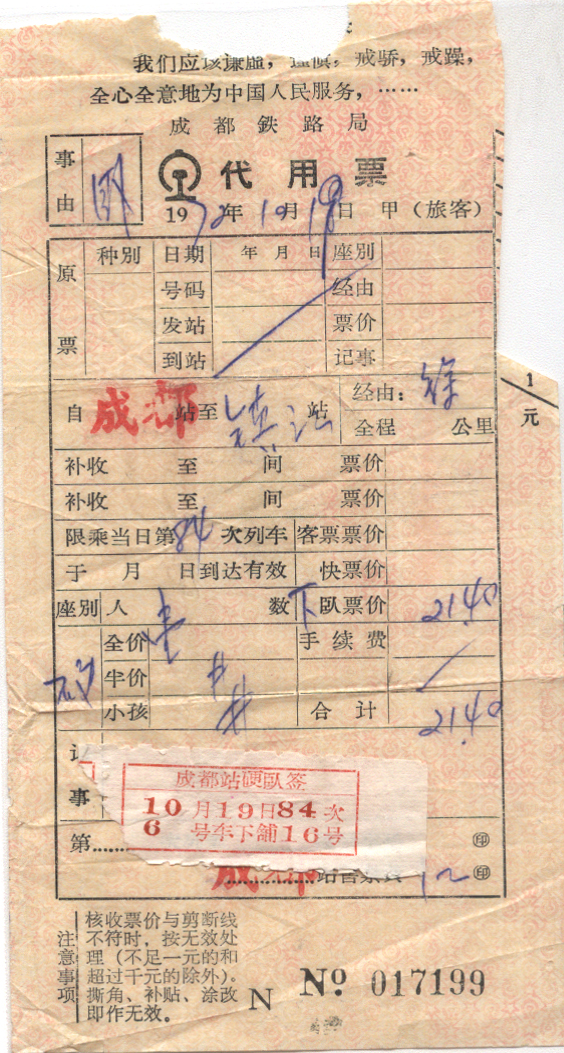 我们应该谦虚,谨慎,戒骄,戒躁,
全心全意地为中国人民服务,……
成都鉄路局
事由
代用票
1972年10月19日 甲(旅客)
原票 种别 日期 年月日 座别
号码 经由
发站 票价
到站 记事
自成都站至镇江站 经由:徐
全程 公里
1元
补收 至 间 票价
补收 至 间 票价
限乘当日第84次列车 客票票价
于 月 日到达有效 快票价
座别 人数 下臥票价 21.40
全价 壹 手续费
半价 #
小孩 # 合计 21.40
事
成都站硬臥签
10月19日84次
6号车下舖16号
第…… 印
成都 印
注意事项
核收票价与剪断线
不符时,按无效处
理(不足一元的和
超过千元的除外)。
撕角、补贴、涂改
即作无效。
N № 017199